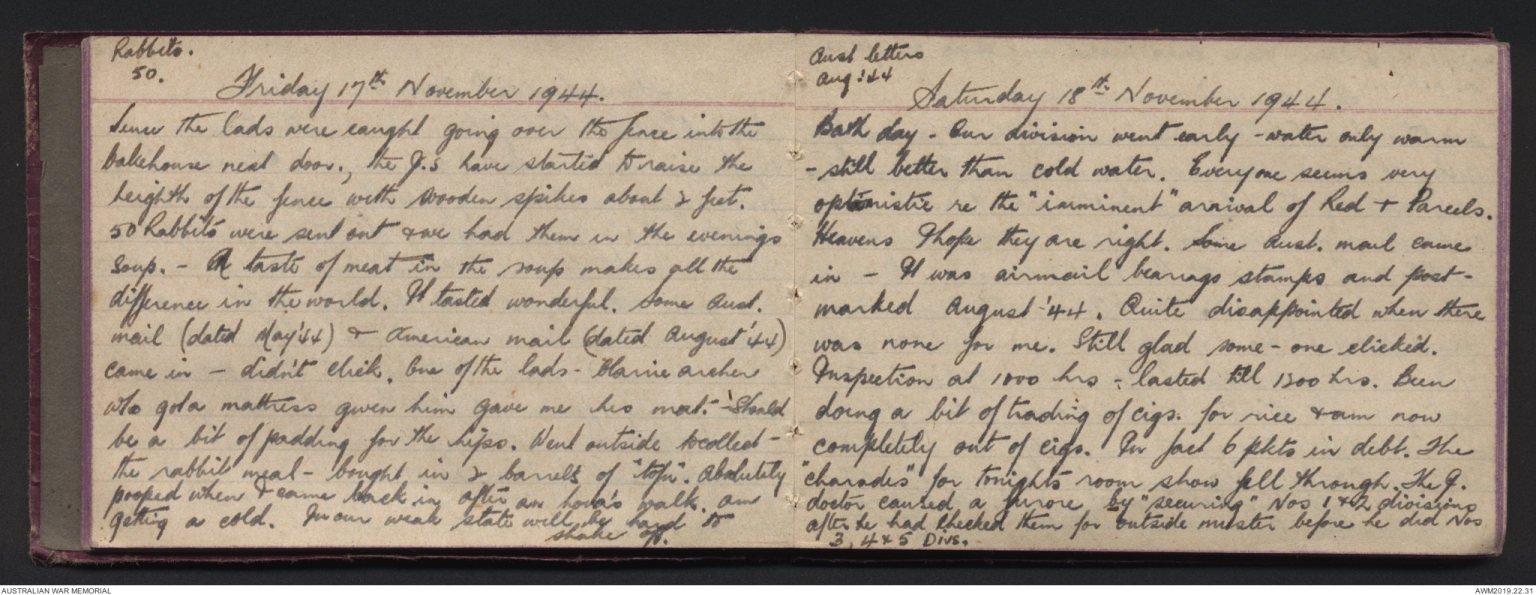 Rabbits.
50.
Friday 17th November 1944.
Since the lads were caught going over the fence into the
bakehouse next door., the J.s have started to raise the
heighth of the fence with wooden spikes about 2 feet.
50 Rabbits were sent out & we had them in the evenings
soup. - A taste of meat in the soup makes all the
difference in the world. It tasted wonderful. Some Aust.
mail (dated May '44) & American mail (dated August '44)
came in - didn't click. One of the lads - Archer
who got a mattress given him gave me his mat. - Should
be a bit of padding for the hips. Went outside to collect -
the rabbit meal - bought in 2 barrels of "tofu". Absolutely
pooped when I came back in after an hour's walk. am
getting a cold. In our weak state will be hard to
shake off.
Aust letters
Aug: '44
Saturday 18th November 1944.
Bath day - Our division went early - water only warm
- still better than cold water. Everyone seems very
optimistic re the "imminent" arrival of Red + Parcels.
Heavens I hope they are right. Some Aust. mail came
in - It was airmail bearing stamps and post-
marked August '44. Quite disappointed when there
was none for me. Still glad some-one clicked.
Inspection at 1000 hrs - lasted till 1200 hrs. Been
doing a bit of trading of cigs. for rice & am now
completely out of cigs. In fact 6 pkts in debt. The
"charades" for tonights room show fell through. The J.
doctor caused a furore by "securing" Nos 1 & 2 divisions
after he had checked them for outside muster before he did Nos
3, 4 & 5 Divs.
AUSTRALIAN WAR MEMORIAL
AWM2019.22.31